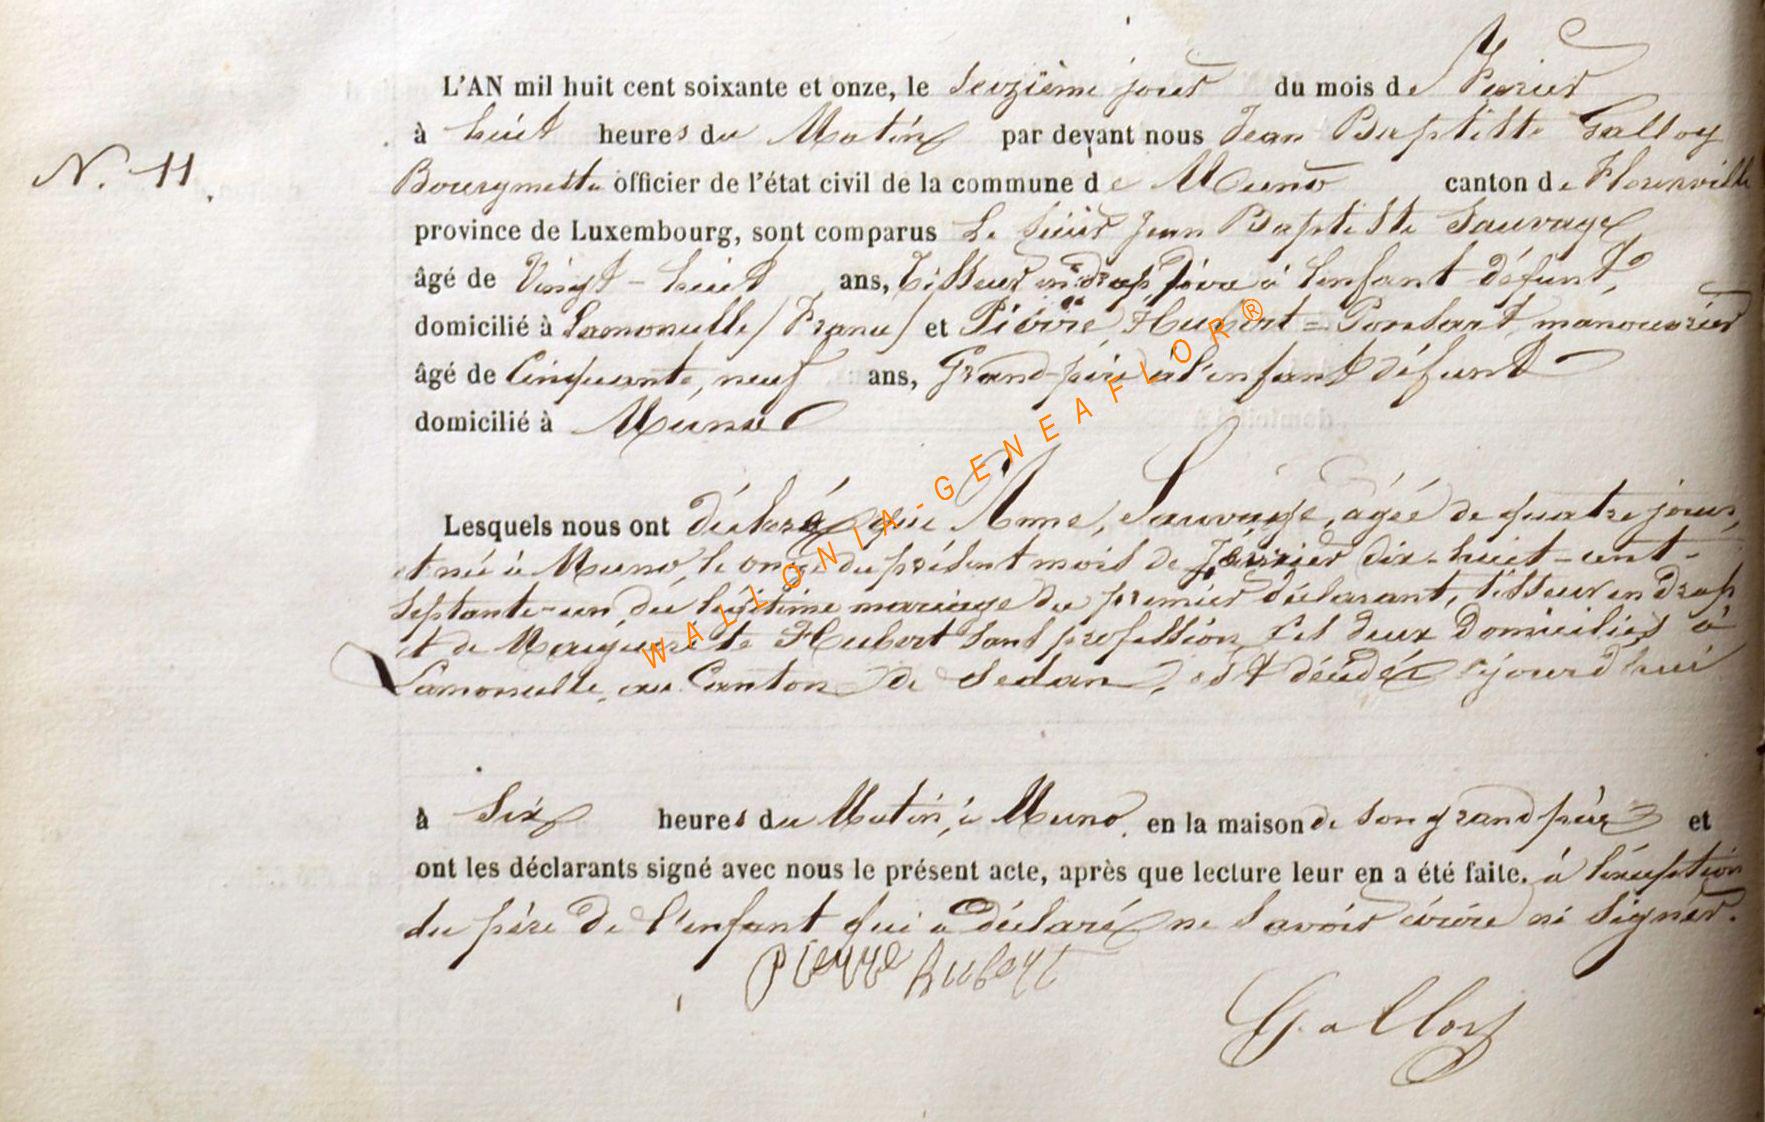 L'AN mil huit cent soixante et onze, le seizième jour du mois de Février
à huit heures du Matin par devant nous Jean Baptiste Galloy
N. 11
Bourgmestre officier de l'état civil de la commune de Muno canton de Florenville
province de Luxembourg, sont comparus Le sieur Jean Baptiste Sauvage
âgé de Vingt-huit ans, tisseur en drap père à l'enfant défunt,
domicilié à Lamoncelle (France) et Pierre Hubert = Ponsart, manouvrier
âgé de Cinquante, neuf ans, Grand-père à l'enfant défunt
domicilié à Muno
Lesquels nous ont déclaré que Anne, Sauvage, agée de quatre jours,
et née à Muno, le onze du présent mois de Février dix-huit-cent-
septante-un, du légitime mariage du premier déclarant, tisseur en drap
et de Marguerite Hubert sans profession, les deux domiciliés à
Lamoncelle, au Canton de Sedan, est décédée aujourd'hui
à six heures du Matin, à Muno, en la maison de son grand père et
ont les déclarants signé avec nous le présent acte, après que lecture leur en a été faite. à l'exception
du père de l'enfant qui a déclaré ne savoir écrire ni signer.
Pierre hubert
Galloy
WALLONIA-GENEAFLOR®